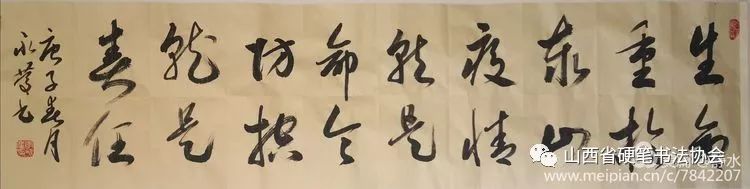 生命
重於
泰山
疫情
就是
命令
防控
就是
责任
庚子春月
永书
山西省硬笔书法协会
www.meipian.cn/c/7842207